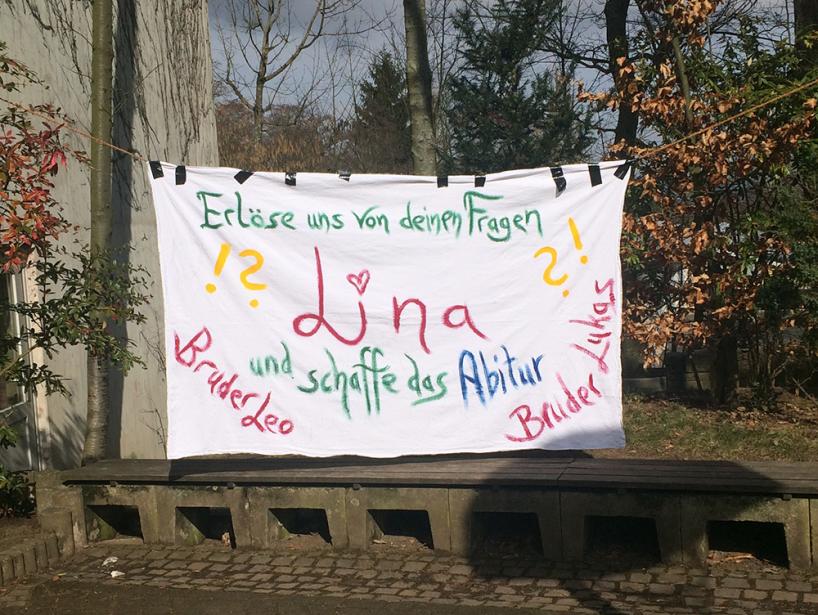 Erlöse uns von deinen Fragen
!? ?!
Lina
und schaffe das Abitur
Bruder Leo
Bruder Lukas